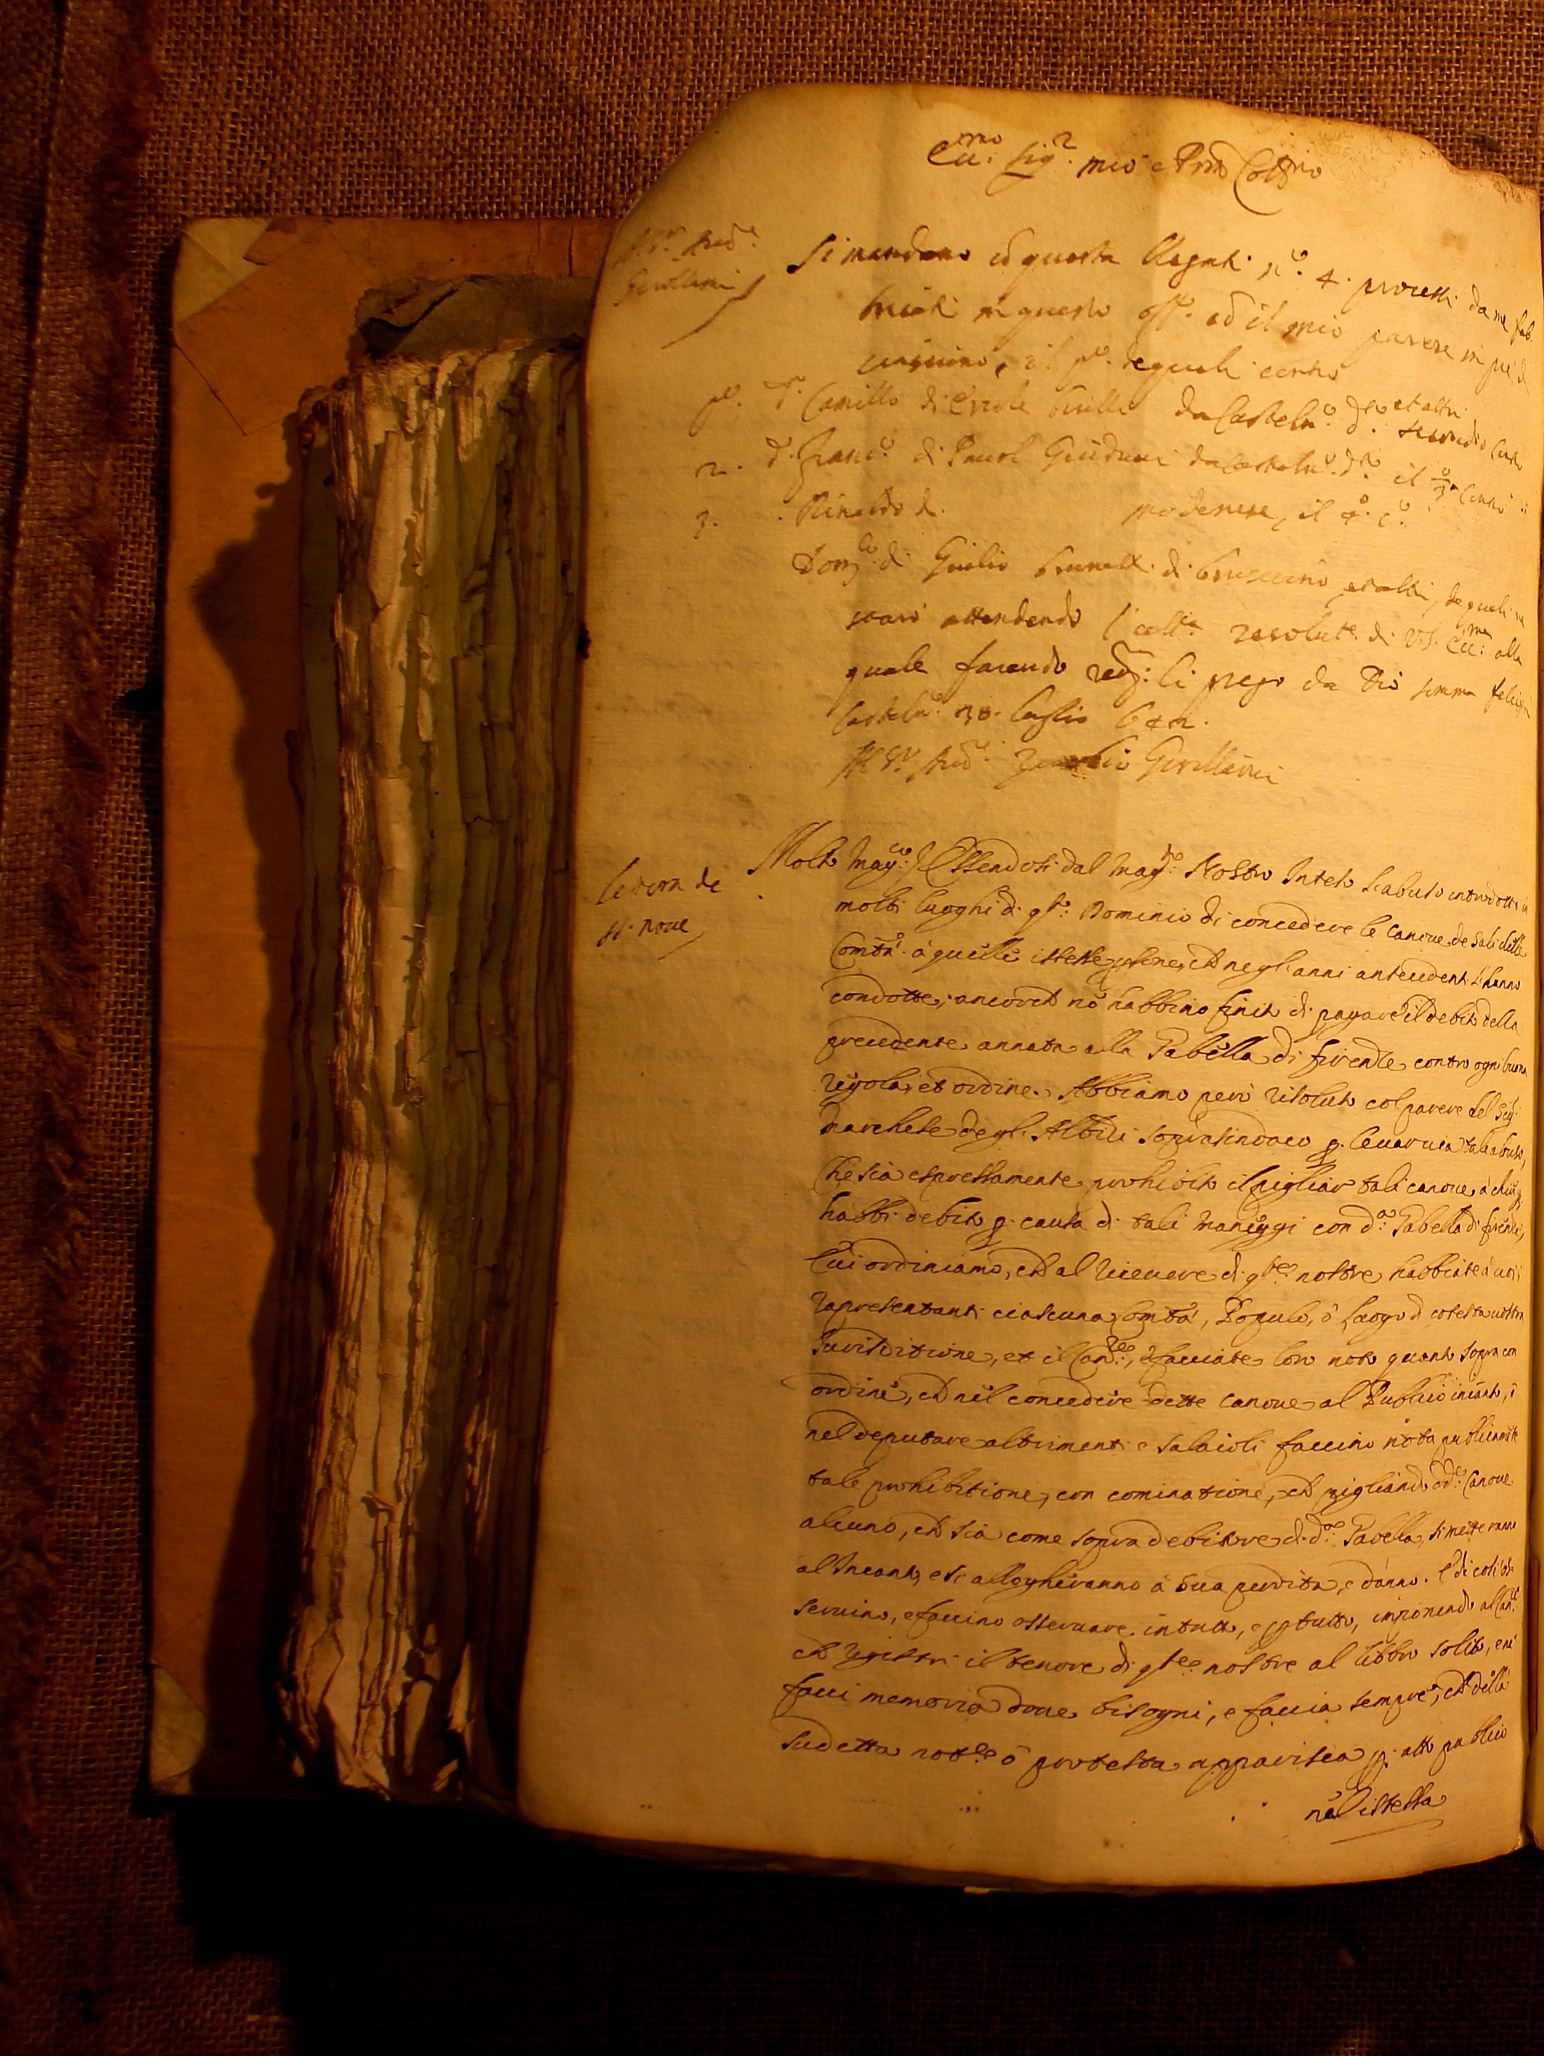 sig.r mio
Si mandano questa n.o 4. processi da me fab
in questo off.o ed il mio parere in piè di
il p.o de quali contro
p.o Camillo di Ercole da Casteln.o et altri secondo contro
2. Franc.o di Pauol Giuducci da Casteln.o d.o il 3.o Contro di
3. Rinaldo d. modenese, il 4.o c.o
Dom.co di Giulio Brunetti di bruscciano et altri, de quali ne
starò attendendo l' resolut.e di V.S. alla
quale facendo li prego da Dio somma felicità
Casteln.o 30. luglio 642.
Gerellini
lettera de
ss.i noue
Molto Mag.co Essendosi dal Mag.to Nostro Inteso l'abuso introdotto in
molti luoghi di q.to Dominio di concedere le Canoue de Sali delle
Com.tà à quelle istesse persone, ch negli anni antecedenti l'hanno
condotte, ancorch nō habbino finito di pagare il debito della
precedente annata alla Gabella di firenze contro ogni buona
regola, et ordine. Abbiamo però risoluto col parere del Sig.
Marchese degli Albizi soprasindaco p. leuar uia tale abuso,
Che sia espressamente prohibito il pigliar tali canoue à chiūq.
habbi debito p. causa di tali maneggi con d.a Gabella di firenze,
Cui ordiniamo, ch al riceuere di q.te nostre habbiate à uoi i
rapresentanti ciascuna Com.tà, Populo, ò luogo d cotesta uostra
Iurisditione, et il Can.re, e facciate loro noto quanto sopra con
ordine, ch nel concedere dette canoue al Publico incanto, ò
nel deputare altrimenti e salaioli faccino nota publicam.te
tale prohibitione, con cominatione, ch pigliando d.e Canoue
alcuno, ch sia come sopra debitore di d.a Gabella, si metteranno
al Incanto, e si allogheranno à sua perdita, e danno. E di così os
seruino, e faccino osseruare in tutto, e p tutto, imponendo al Can.re
ch registri il tenore di q.te nostre al libro solito, e ne
facci memoria doue bisogni, e faccia sempre, ch della
sudetta not.e ò protesta apparisca p. atto publico
nel istessa